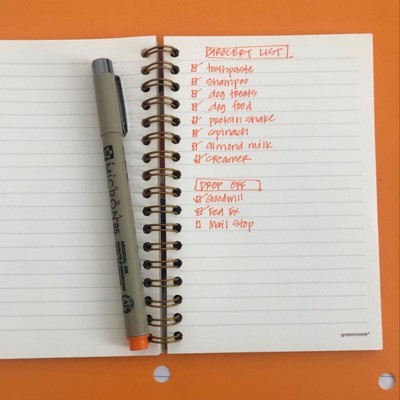 GROCERY LIST
toothpaste
shampoo
dog treats
dog food
protein shake
spinach
almond milk
creamer
DROP OFF
Goodwill
Fed Ex
Mail Stop
MICRON 05
greenroom